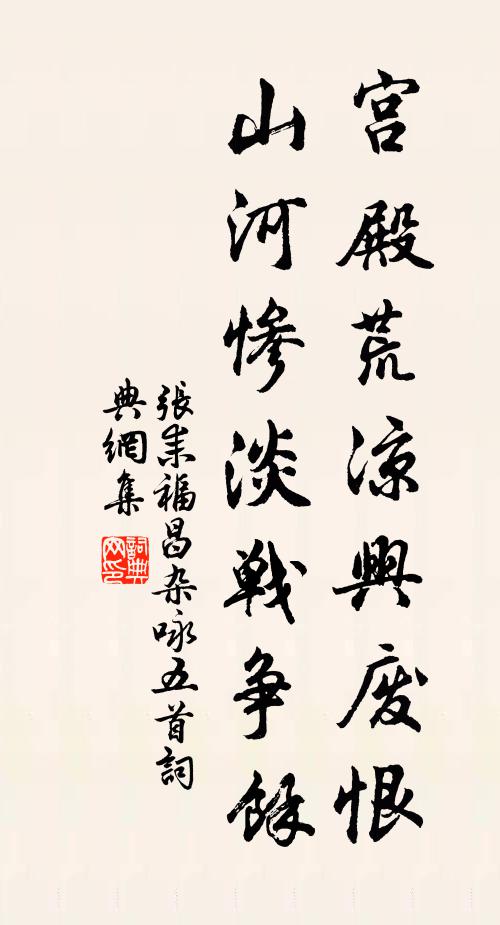 宫殿荒凉興废恨
山河惨淡戦争餘
張耒福昌杂咏五首詞
典網集
詞典网印